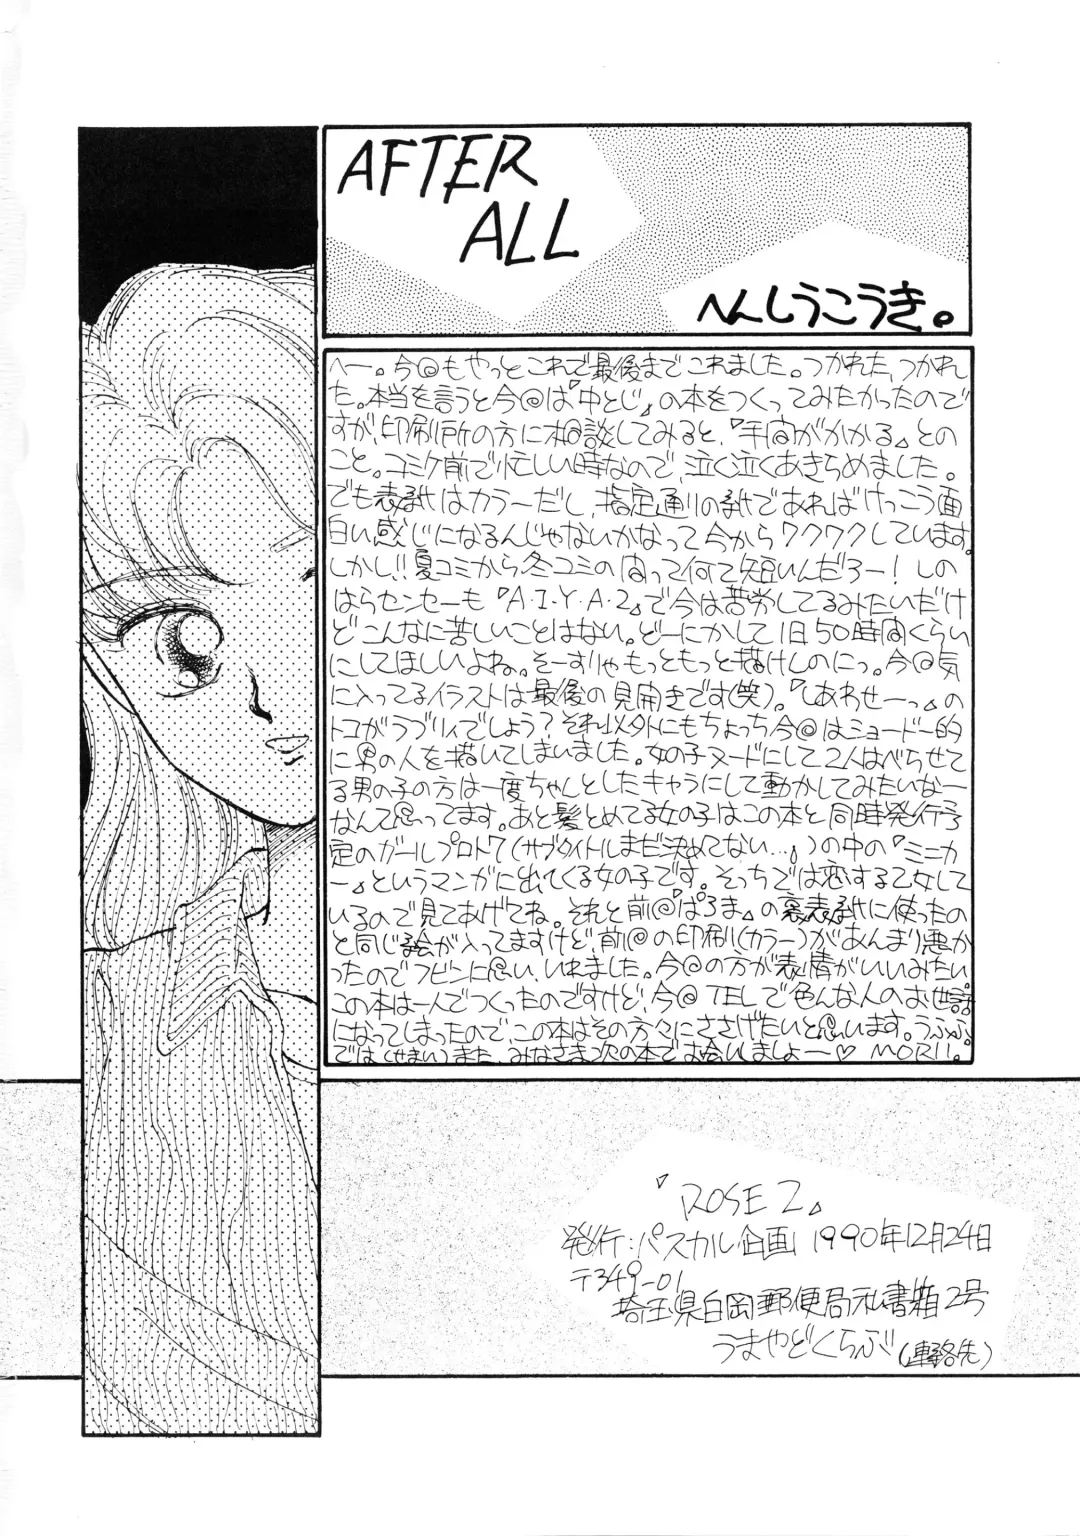 AFTER
ALL
へんしうこうき。
へー。今@もやっとこれで最後までこれました。つかれた、つかれ
た。本当を言うと今@は『中とじ』の本をつくってみたかったので
すが、印刷所の方に相談してみると、『手間がかかる』との
こと。コミケ前で忙しい時なので、泣く泣くあきらめました。
でも表紙はカラーだし、指定通りの紙であればけっこう面
白い感じになるんじゃないかなって今からワクワクしています。
しかし!!夏コミから冬コミの間って何て短いんだろー!しの
はらセンセーも『A・I・Y・A・2』で今は苦労してるみたいだけ
どこんなに苦しいことはない。どーにかして1日50時間くらい
にしてほしいよね。そーすりゃもっともっと描けしのにっ。今@気
に入ってるイラストは最後の見開きです(笑)。『しあわせーっ』の
トコがラブリィでしょう?それ以外にもちょっち今@はショードー的
に男の人を描いてしまいました。女の子ヌードにして2人はべらせて
る男の子の方は一度ちゃんとしたキャラにして動かしてみたいなー
なんて思ってます。あと髪とめてる女の子はこの本と同時発行予
定のガールプロト7(サブタイトルまだ決めてない…。)の中の『ミニカ
ー』というマンガに出てくる女の子です。そっちでは恋する乙女して
いるので見てあげてね。それと前@『ぱろま』の裏表紙に使ったの
と同じ絵が入ってますけど、前@の印刷(カラー)があんまり悪か
ったのでフビンに思い、いれました。今@の方が表情がいいみたい。
この本は一人でつくったのですけど、今@TELで色んな人のお世話
になってしまったので、この本はその方々にささげたいと思います。うふふ。
では(せまい)また、みなさま次の本でお会いしましょー♡ MORII。
『ROSE 2』
発行:パスカル企画 1990年12月24日
〒349-01
埼玉県白岡郵便局私書箱2号
うまやどくらぶ(連絡先)